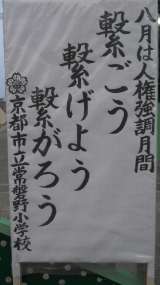 八月は人権強調月間
繋ごう
繋げよう
繋がろう
京都市立常磐野小学校